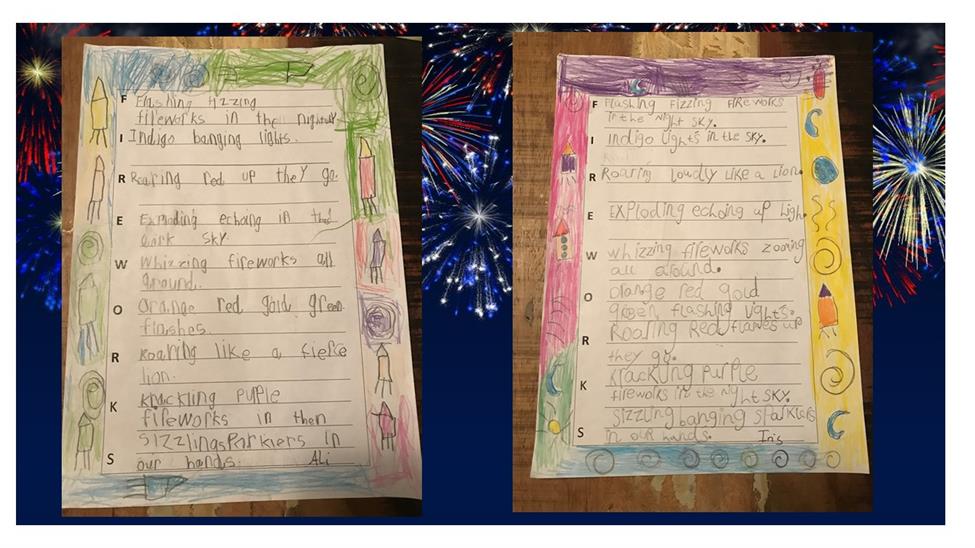 F Flashing fizzing
fireworks in the
I Indigo banging lights.
R Roaring red up they go.
E Exploding echoing in the
dark sky.
W Whizzing fireworks all
ground.
O Orange red gold green
flashes.
R Roaring like a fierce
lion.
K Krackling puple
fireworks in then
sizzlingsparklers in
S our hands. Ali
F Flashing fizzing fireworks
in the night sky.
I Indigo lights in the sky.
R Roaring loudly like a lion.
E Exploding echoing up
W Whizzing fireworks zooming
all around.
O Orange red gold
green flashing lights.
R Roaring Red flames up
they go.
K Krackling purple
fireworks in the night sky.
sizzling banging sparklers
S in our hands. Iris